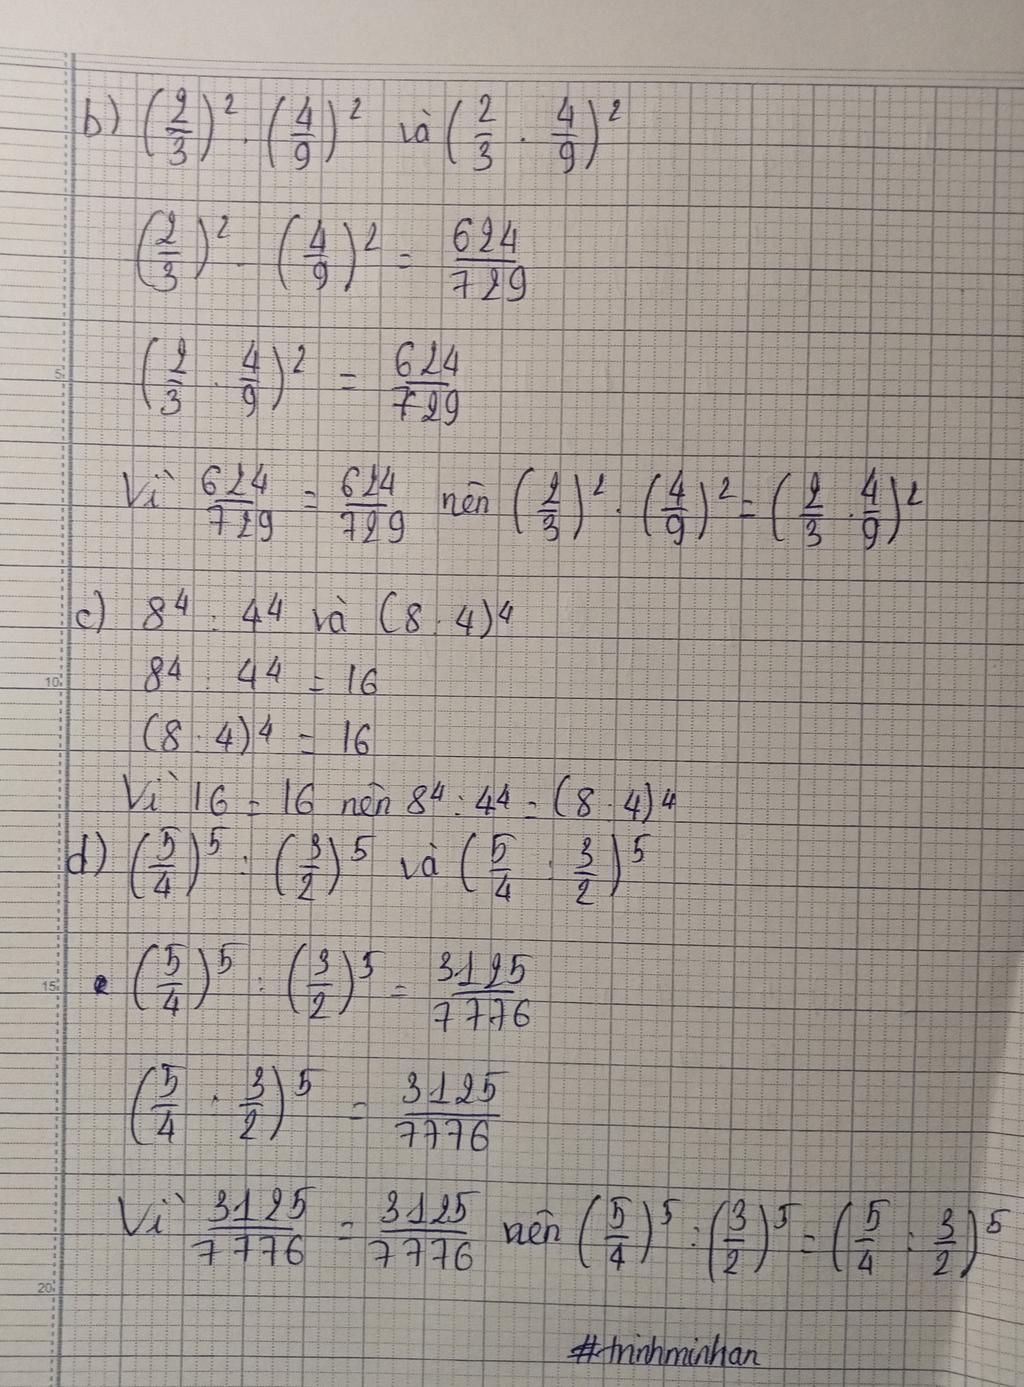 b) (2/3)² . (4/9)² và (2/3 . 4/9)²
(2/3)² . (4/9)² = 624/729
(2/3 . 4/9)² = 624/729
Vì 624/729 = 624/729 nên (2/3)² . (4/9)² = (2/3 . 4/9)²
c) 8⁴ : 4⁴ và (8 : 4)⁴
8⁴ : 4⁴ = 16
(8 : 4)⁴ = 16
Vì 16 = 16 nên 8⁴ : 4⁴ = (8 : 4)⁴
d) (5/4)⁵ : (3/2)⁵ và (5/4 : 3/2)⁵
(5/4)⁵ : (3/2)⁵ = 3125/7776
(5/4 : 3/2)⁵ = 3125/7776
Vì 3125/7776 = 3125/7776 nên (5/4)⁵ : (3/2)⁵ = (5/4 : 3/2)⁵
#trinhminhan
5
10
15
20